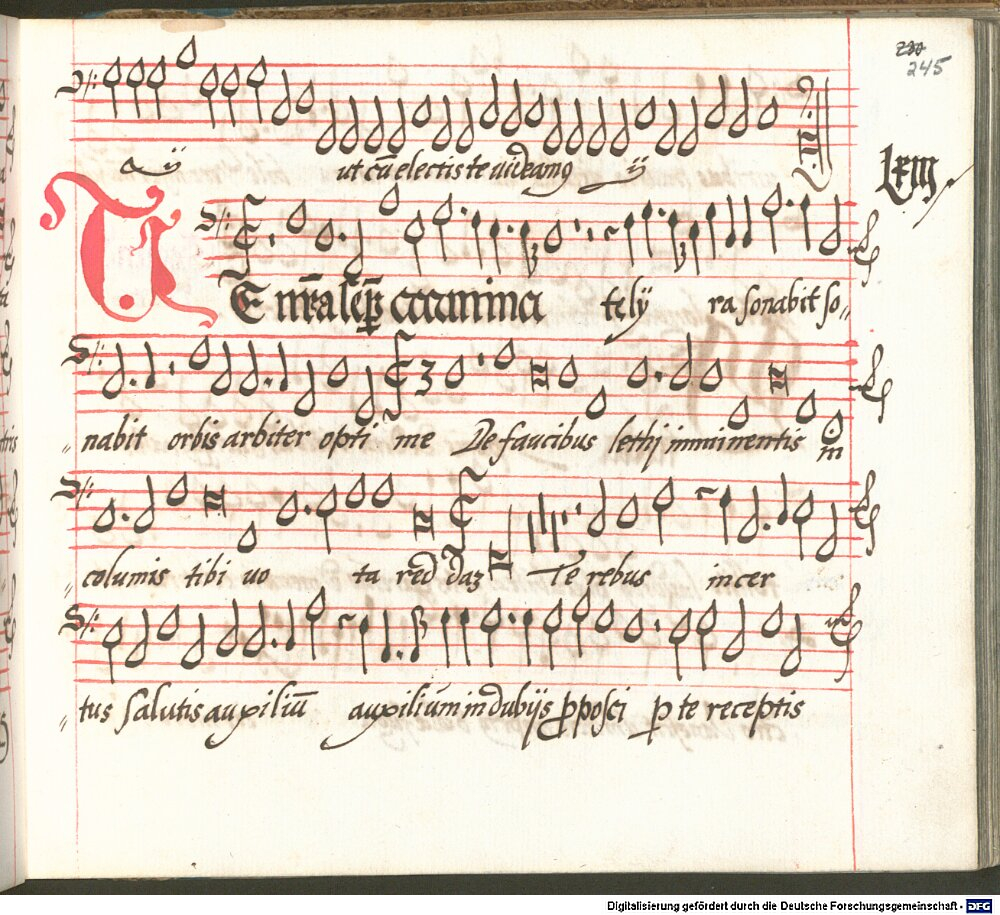 245
a ij ut cū electis te videamꝯ ij
Lxiij
TE nr̄a sēꝑ carmina te lÿ ra sonabit so„
„nabit orbis arbiter opti me De faucibus lethi imminentis in
„columis tibi vo ta red daꝫ Te rebus incer
„tus salutis auxiliū auxilium in dubijs ꝓposci ꝑ te receptis
Digitalisierung gefördert durch die Deutsche Forschungsgemeinschaft - DFG